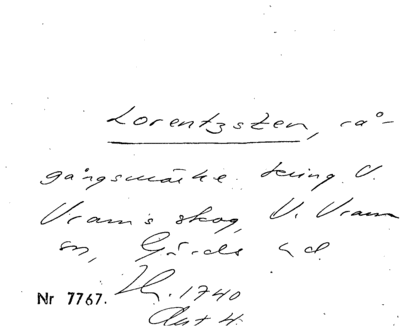 Lorentzsten, rå-
gångsmärke kring V.
Vrams skog, V. Vram
sn, Gärds hd.
Nr 7767. Lh. 1740
Akt 4.